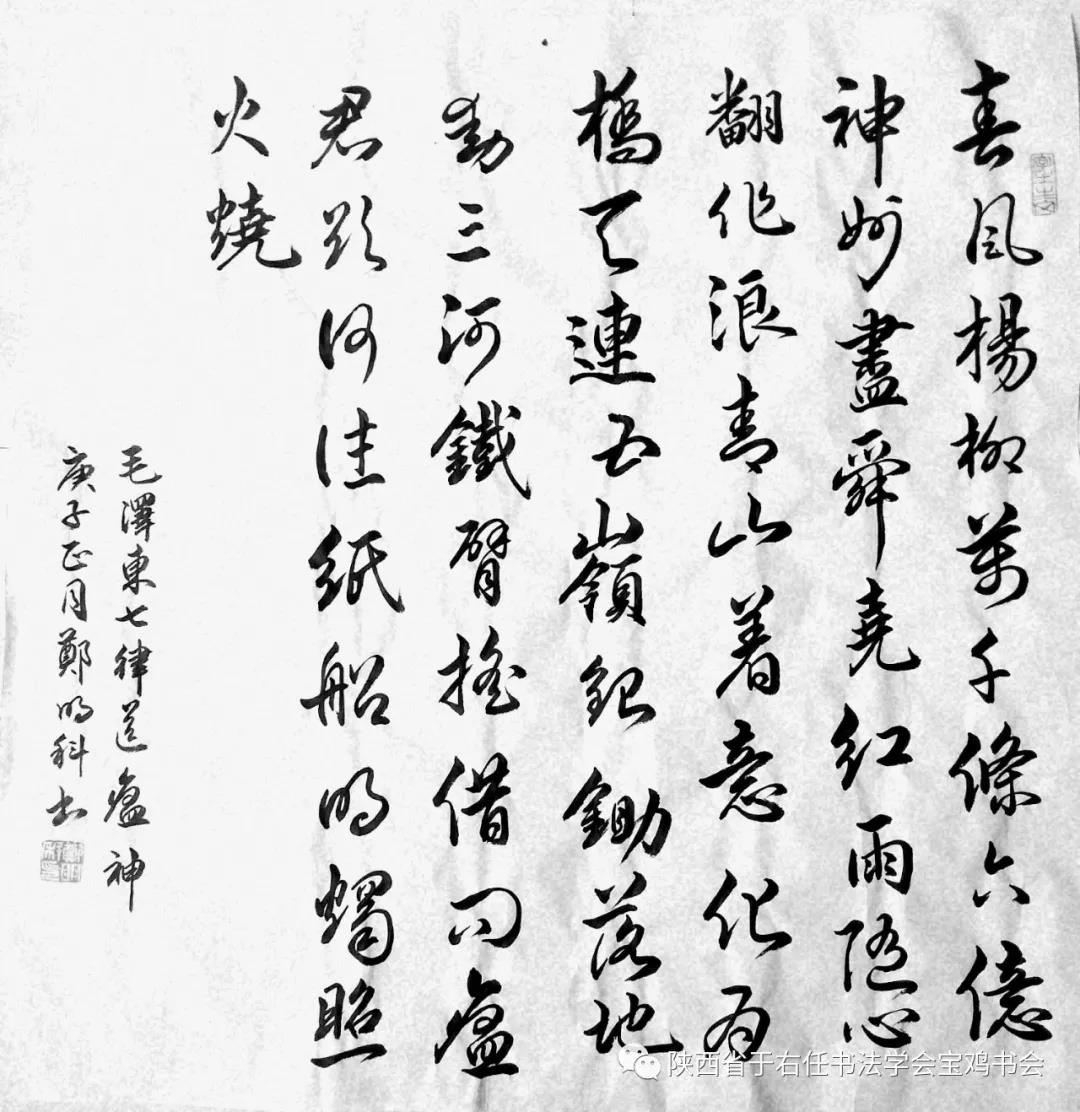 春風楊柳萬千條六億
神州盡舜堯紅雨隨心
翻作浪青山着意化為
橋天連五嶺銀鋤落地
動三河鐵臂搖借問瘟
君欲何往紙船明燭照
火燒
毛澤東七律送瘟神
庚子正月鄭明科書
陕西省于右任书法学会宝鸡书会